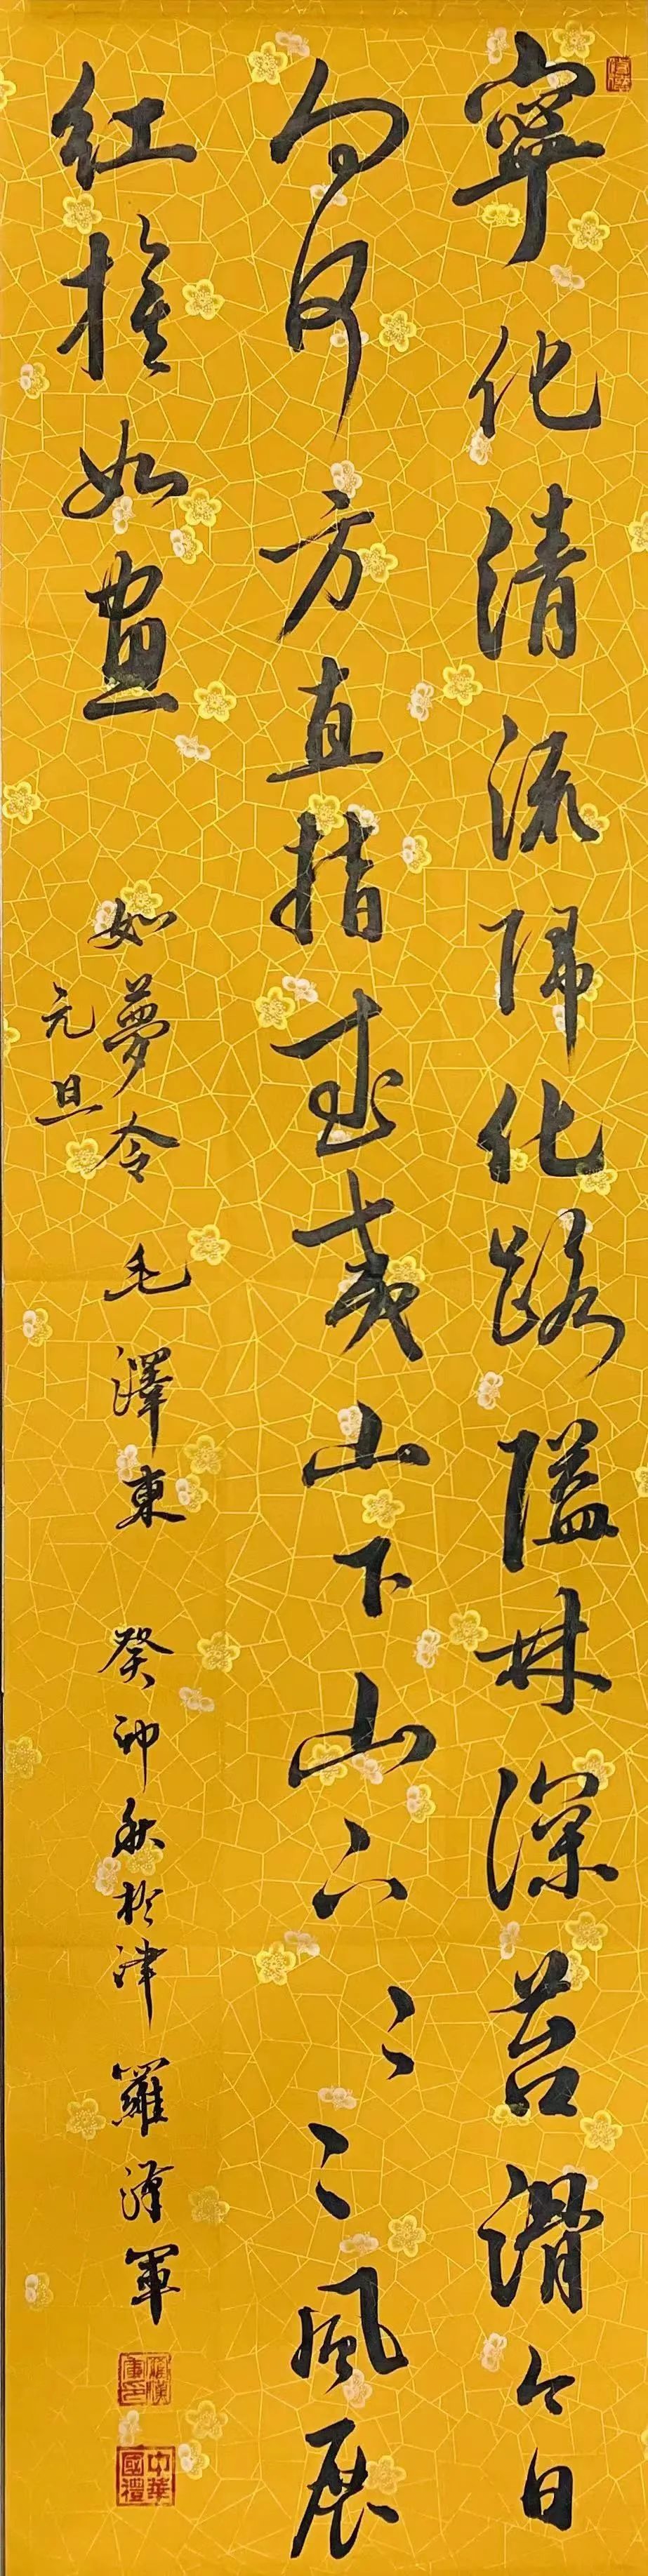 寧化清流歸化路隘林深苔滑今日
向何方直指武夷山下山下〻〻風展
紅旗如畫
如夢令 毛澤東 癸卯秋於津 羅漢軍
元旦
中華國禮